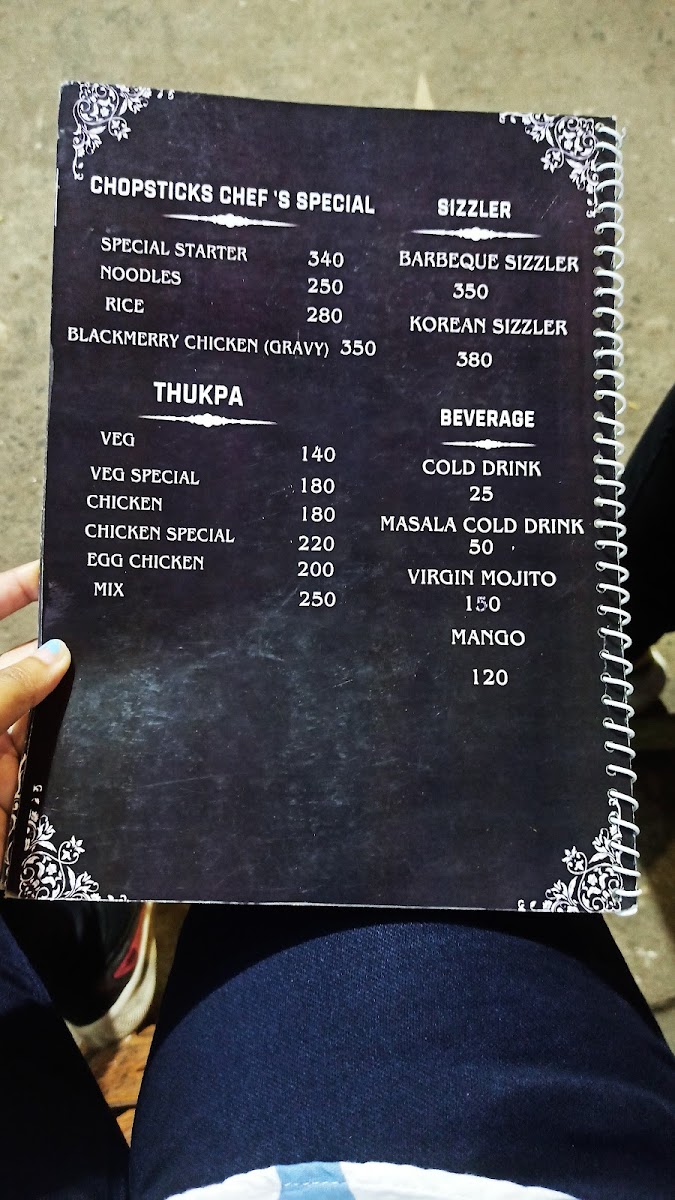 CHOPSTICKS CHEF 'S SPECIAL
SPECIAL STARTER 340
NOODLES 250
RICE 280
BLACKMERRY CHICKEN (GRAVY) 350
THUKPA
VEG 140
VEG SPECIAL 180
CHICKEN 180
CHICKEN SPECIAL 220
EGG CHICKEN 200
MIX 250
SIZZLER
BARBEQUE SIZZLER
350
KOREAN SIZZLER
380
BEVERAGE
COLD DRINK
25
MASALA COLD DRINK
50
VIRGIN MOJITO
150
MANGO
120